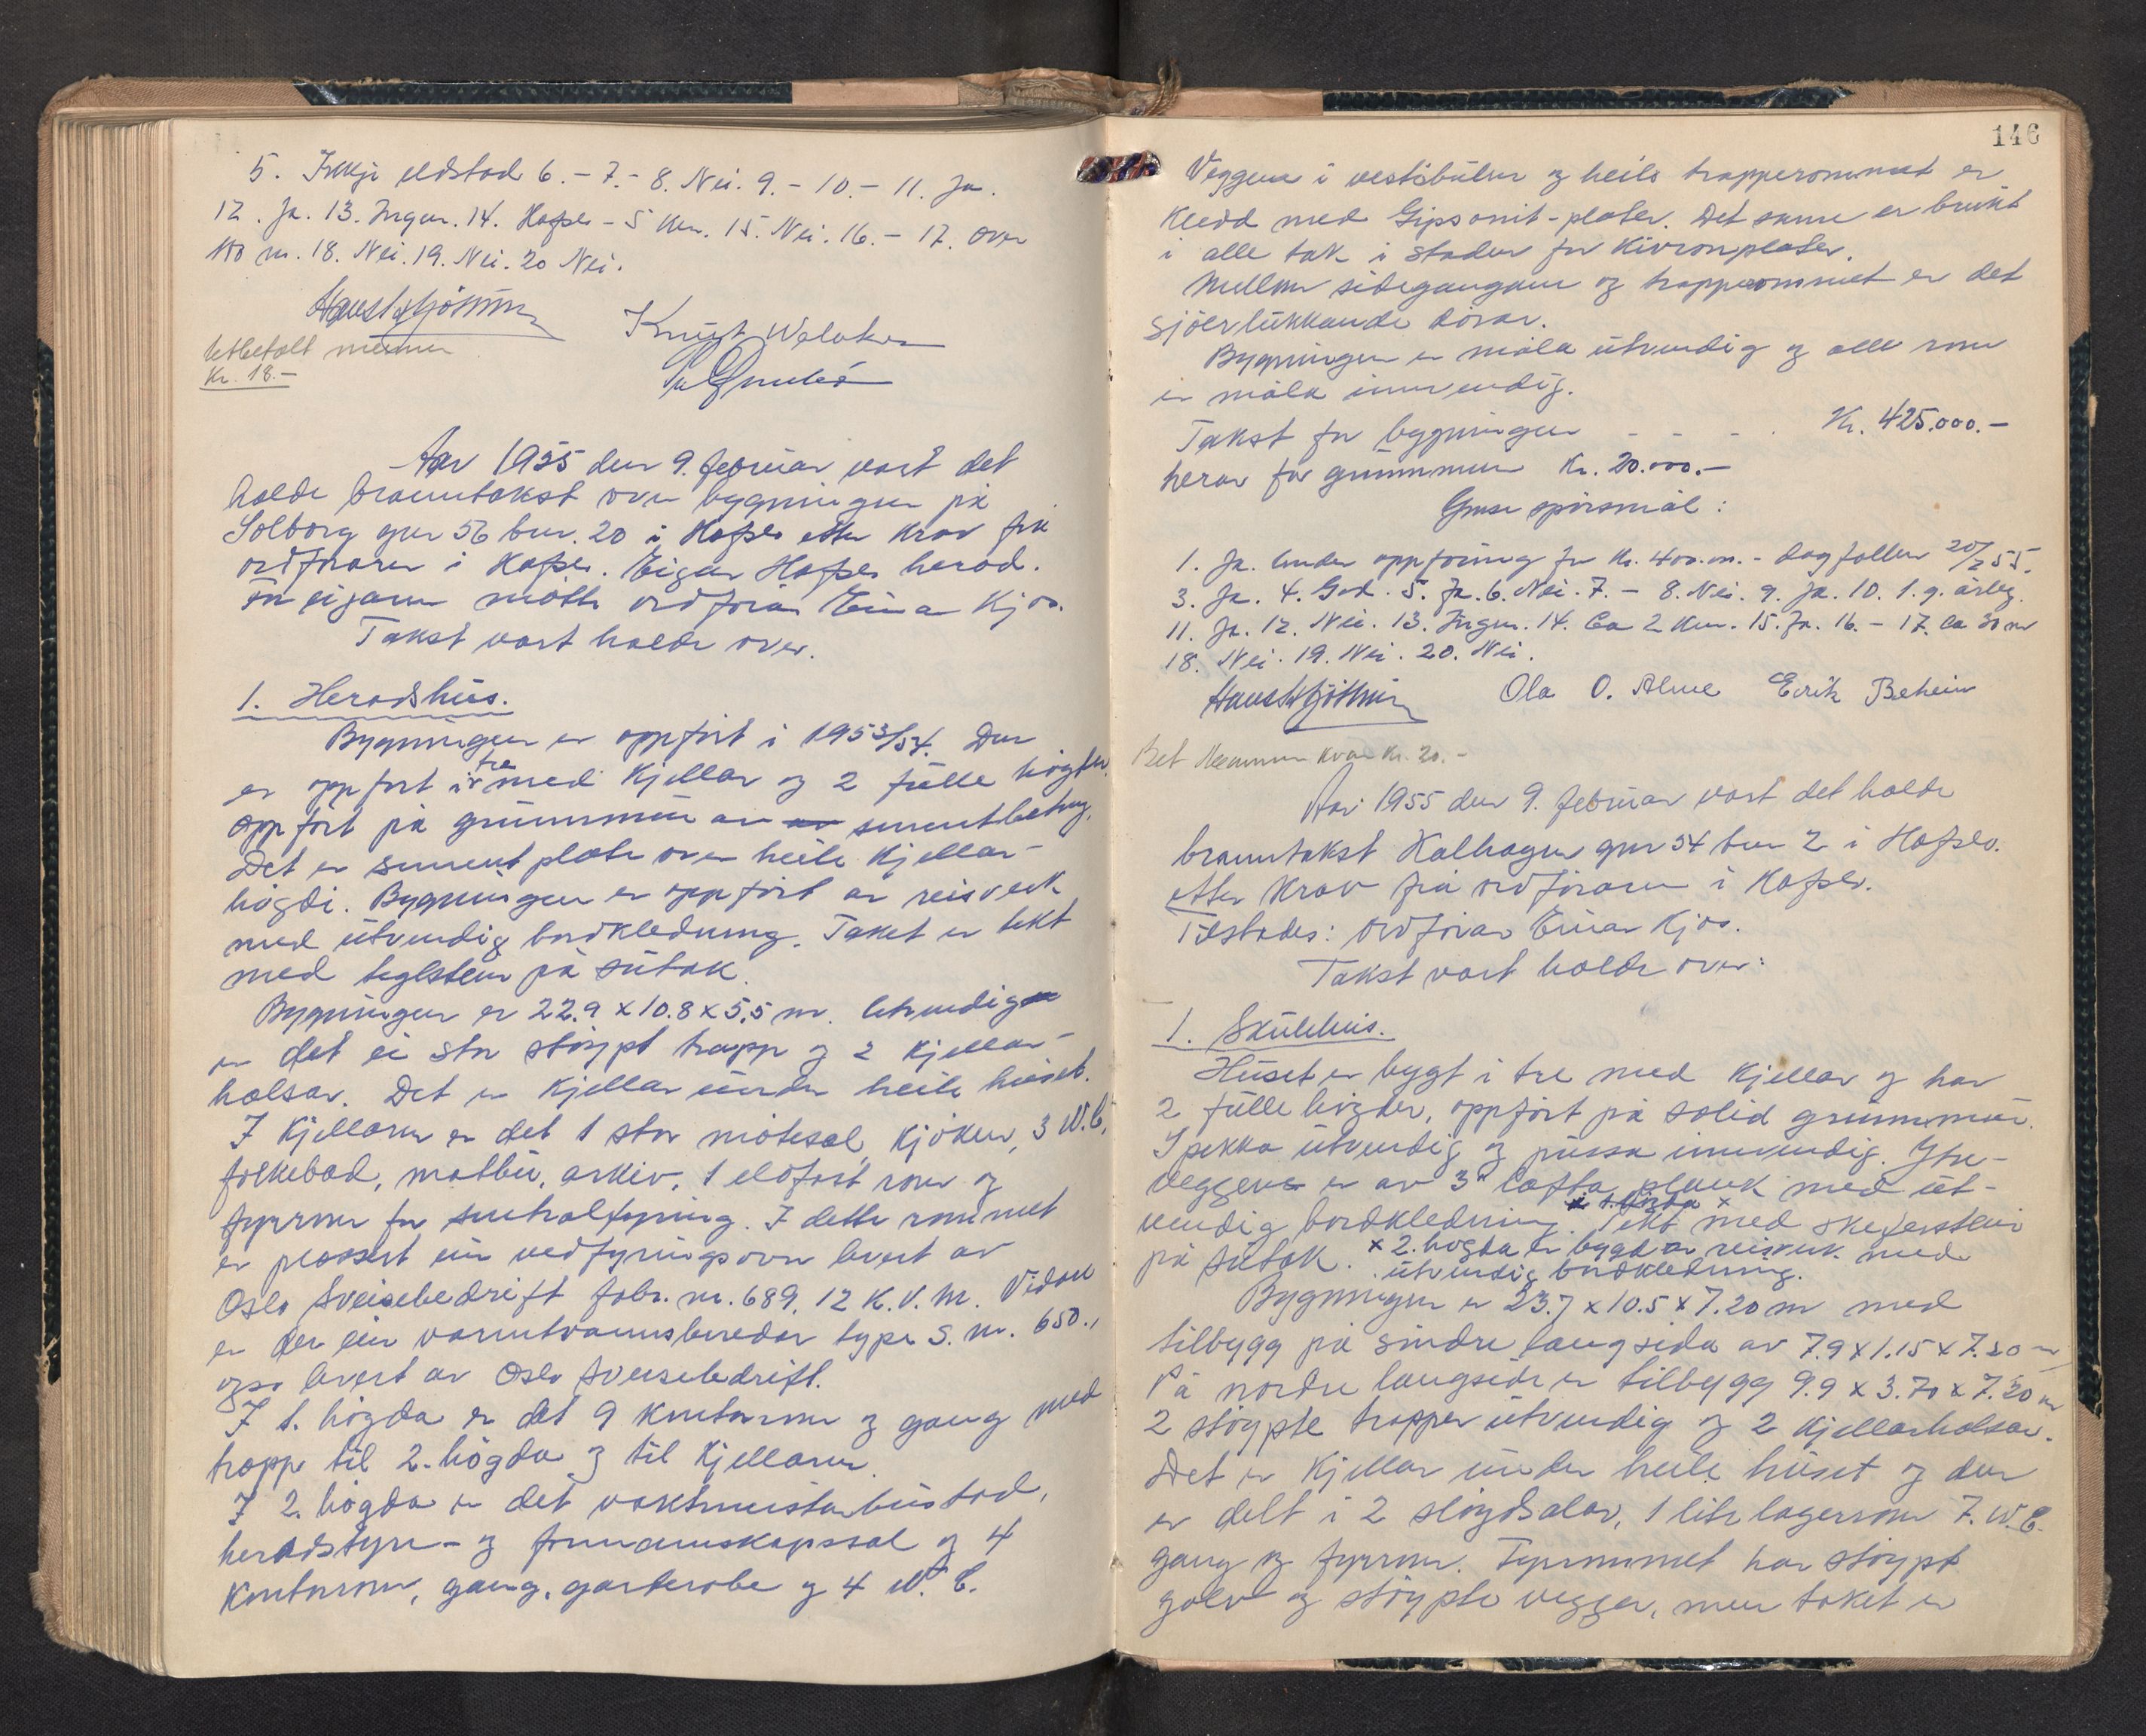 5. Ikkje eldstad 6. - 7. - 8. Nei. 9. - 10. - 11. Ja.
12. Ja. 13. Ingen. 14. Hafslo - 5 km. 15. Nei. 16. - 17. over
100 m. 18. Nei. 19. Nei. 20 Nei.
Knut Welaker
Utbetalt menn
Kr. 18.-
Aar 1955 den 9. februar vart det
halde branntakst over bygningen på
Solborg gnr 56 bnr. 20 i Hafslo etter krav frå
ordføraren i Hafslo. Eigar Hafslo herad.
For eigaren møtte ordførar Einar Kjos.
Takst vart halde over.
1. Heradshus.
Bygningen er oppført i 1953/54. Den
er oppført i tre med kjellar og 2 fulle høgder.
Oppført på grunnmur av sementbetong.
Det er sement plate over heile kjellar-
høgdi. Bygningen er oppført av reisverk
med utvendig bordkledning. Taket er tekt
med teglstein på sutak.
Bygningen er 22.9 x 10.8 x 5.5 m. Utvendig
er det ei stor støypt trapp og 2 kjellar-
halsar. Det er kjellar under heile huset.
I kjellaren er det 1 stor møtesal, kjøken, 3 W.C,
folkebad, matbu, arkiv, 1 eldfast rom og
fyrrom for sentralfyring. I dette rommet
er plassert ein vedfyringsovn levert av
Oslo Sveisebedrift fabr. nr. 689, 12 K.V.M. Vidare
er der ein varmtvannsbereder type S. nr. 650.,
og so levert av Oslo Sveisebedrift.
I 1. høgda er det 9 kontorrom og gang med
trapp til 2. høgda og til kjellaren.
I 2. høgda er det vaktmeistarbustad,
heradstyre- og formannskapssal og 4
kontorrom, gang, garderobe og 4 W. C.
146
Veggene i vestibulen og heile trapperommet er
kledd med Gipsonit-plater. Det same er brukt
i alle tak i staden for Kivronplater.
Mellom sidegangane og trapperommet er det
sjølvlukkande dører.
Bygningen er måla utvendig og alle rom
er måla innvendig.
Takst for bygningen - - - . Kr. 425.000.-
herav for grunnmuren Kr. 20.000.-
Gmse spørsmål:
1. Ja. Under oppføring for Kr. 400.000.- dagfallen 20/2 55.
3. Ja. 4. God. 5. Ja. 6. Nei. 7. - 8. Nei. 9. Ja. 10. 1. g. årleg.
11. Ja. 12. Nei. 13. Ingen. 14. Ca 2 km. 15. Ja. 16. - 17. Ca 30 m
18. Nei. 19. Nei. 20. Nei.
Ola O. Alme Eirik Beheim
Bet Mennene kvar Kr. 20.-
Aar 1955 den 9. februar vart det halde
branntakst Kalhagen gnr 54 bnr 2 i Hafslo.
etter krav frå ordføraren i Hafslo.
Tilstades: Ordførar Einar Kjos.
Takst vart halde over:
1. Skulehus.
Huset er bygt i tre med kjellar og har
2 fulle høgder, oppført på solid grunnmur.
Spekka utvendig og pussa innvendig. Ytre-
veggene er av 3" lafta plank med ut-
i 1. høgda x
vendig bordkledning. Tekt med skiferstein
på sutak. x 2. høgda er bygd av reisverk med
utvendig bordkledning.
Bygningen er 23.7 x 10.5 x 7.20 m med
tilbygg på sindre langsida av 7.9 x 1.15 x 7.20 m
På nordre langside er tilbygg 9.9 x 3.70 x 7.20 m
2 støypte trapper utvendig og 2 kjellarhalsar.
Det er kjellar under heile huset og den
er delt i 2 sløydsalar, 1 lite lagerrom 7. W.C.
gang og fyrrom. Fyrrommet har støypt
golv og støypte vegger, men taket er